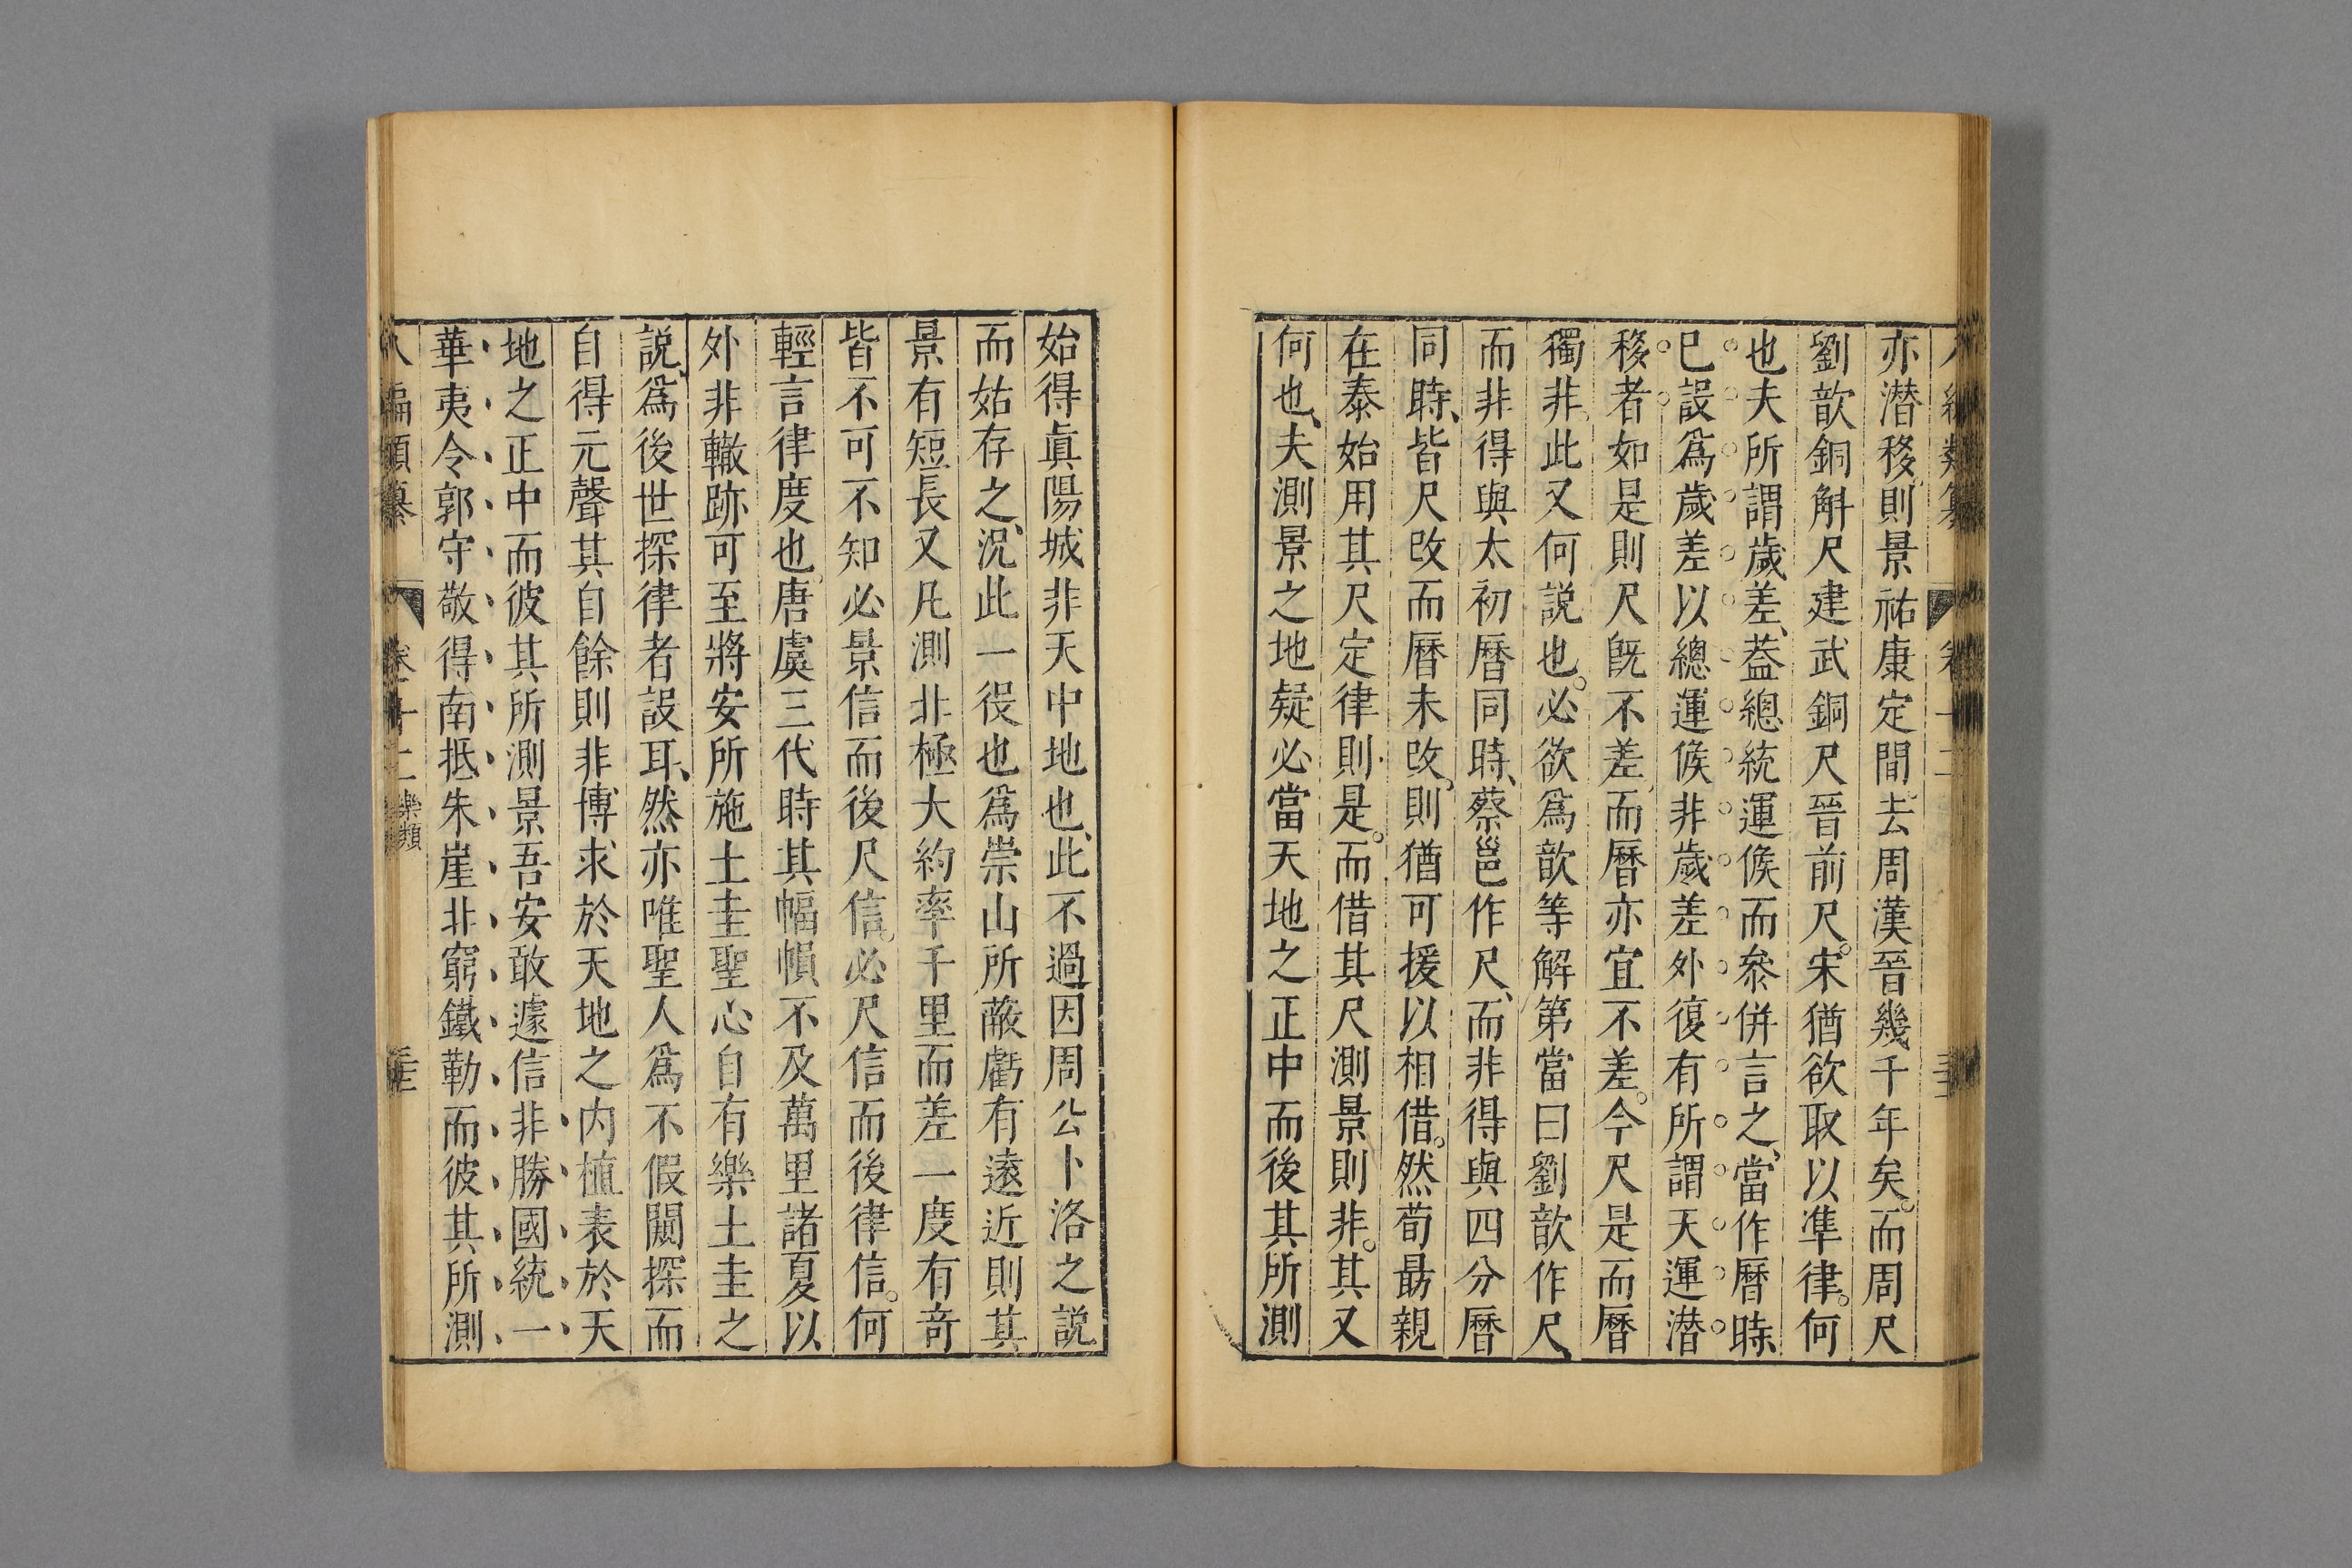 亦潛移則景祐康定間去周漢晉幾千年矣而周尺
劉歆銅斛尺建武銅尺晉前尺宋猶欲取以凖律何
也夫所謂歲差葢總統運候而叅併言之當作曆時
已設爲歲差以總運候非歲差外復有所謂天運潛
移者如是則尺旣不差而曆亦宜不差今尺是而曆
獨非此又何説也必欲爲歆等解第當曰劉歆作尺
而非得與太初曆同時蔡邕作尺而非得與四分曆
同時皆尺改而曆未改則猶可援以相借然荀勗親
在泰始用其尺定律則是而借其尺測景則非其又
何也夫測景之地疑必當天地之正中而後其所測
始得眞陽城非天中地也此不過因周公卜洛之説
而姑存之況此一役也爲崇山所蔽虧有遠近則其
景有短長又凡測北極大約率千里而差一度有奇
皆不可不知必景信而後尺信必尺信而後律信何
輕言律度也唐虞三代時其幅幀不及萬里諸夏以
外非轍跡可至將安所施土圭聖心自有樂土圭之
説爲後世探律者設耳然亦唯聖人爲不假闚探而
自得元聲其自餘則非博求於天地之内植表於天
地之正中而彼其所測景吾安敢遽信非勝國統一
華夷令郭守敬得南抵朱崖北窮鐵勒而彼其所測
八編類纂 卷十二 樂類